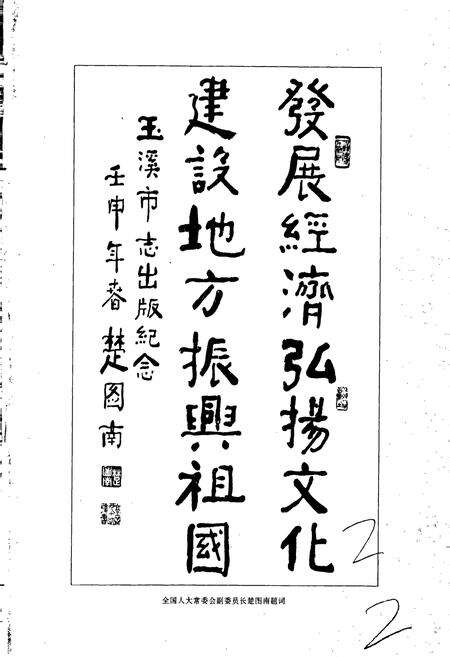 發展經濟弘揚文化
建設地方振興祖國
玉溪市志出版紀念
壬申年春 楚图南
全国人大常委会副委员长楚图南题词
2
2